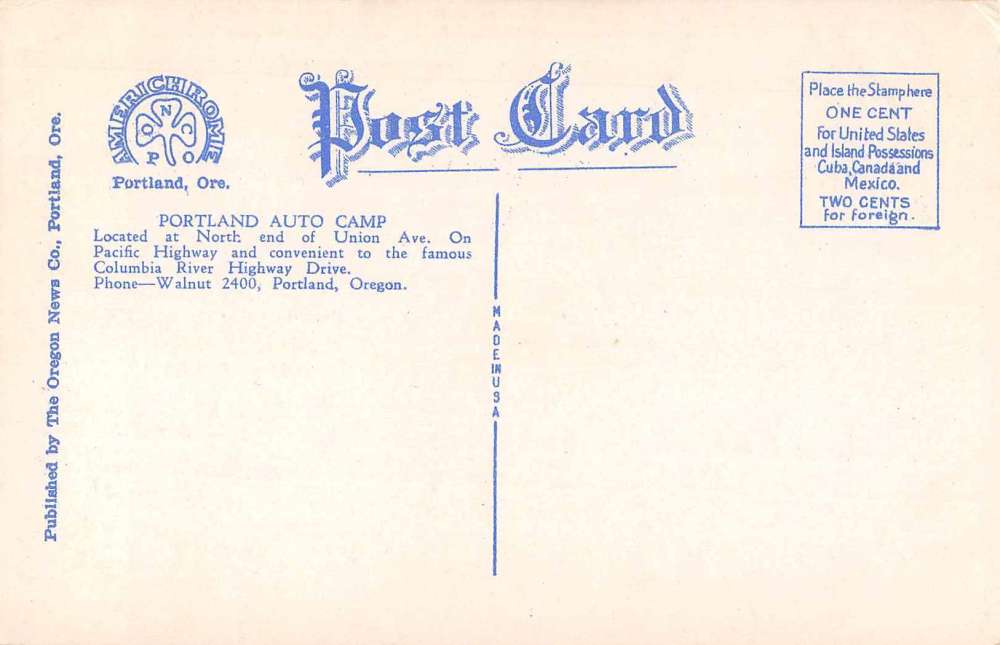 AMERICHROME
O N C
P O
Portland, Ore.
Post Card
Place the Stamp here
ONE CENT
For United States
and Island Possessions
Cuba, Canada and
Mexico.
TWO CENTS
for foreign.
PORTLAND AUTO CAMP
Located at North end of Union Ave. On
Pacific Highway and convenient to the famous
Columbia River Highway Drive.
Phone—Walnut 2400, Portland, Oregon.
Published by The Oregon News Co., Portland, Ore.
MADE IN USA